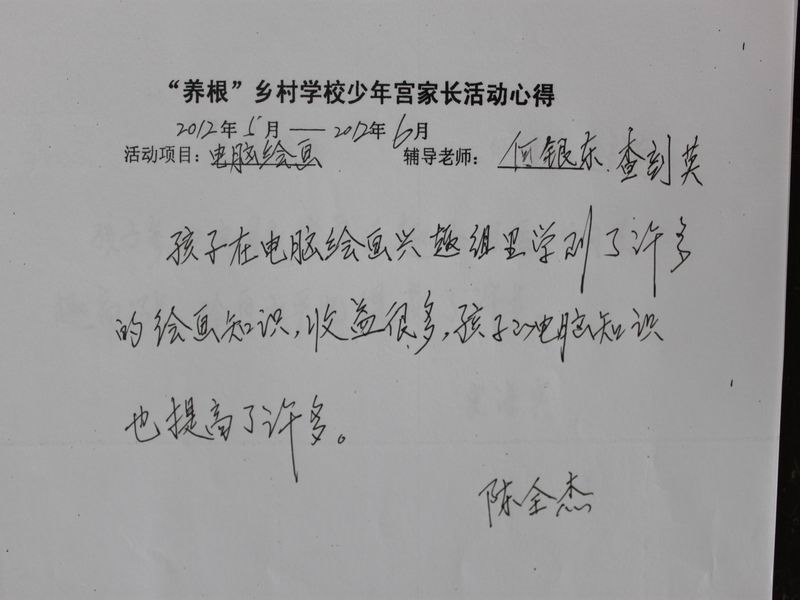 “养根”乡村学校少年宫家长活动心得
2012年5月——2012年6月
活动项目：电脑绘画 辅导老师：何银东.查到英
孩子在电脑绘画兴趣组里学到了许多
的绘画知识,收益很多,孩子的电脑知识
也提高了许多。
陈全杰